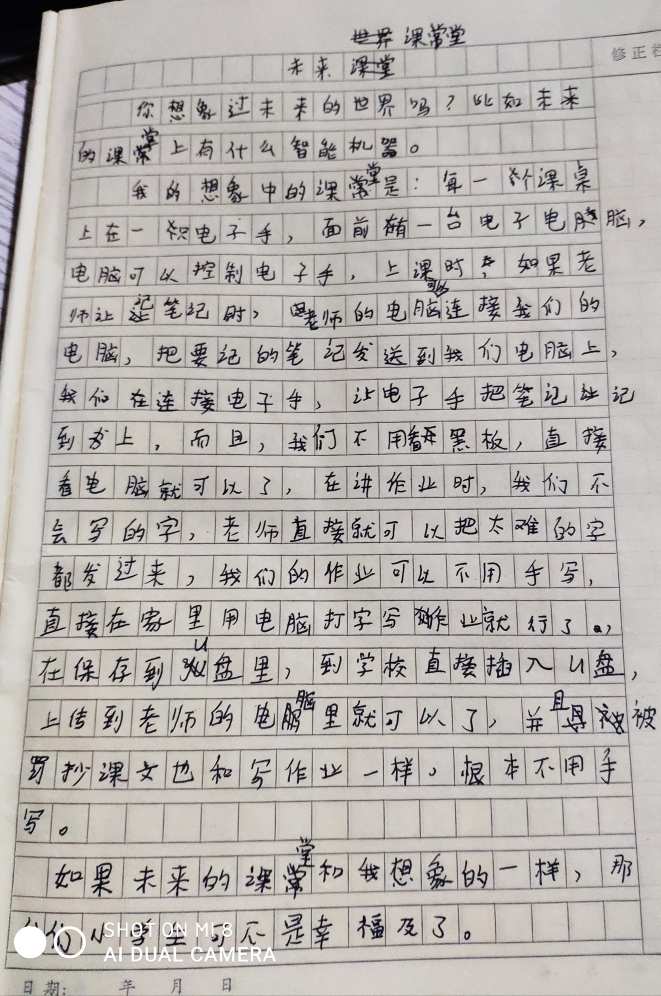 世界 课堂
修正栏
未来 课堂
你想象过未来的世界吗？比如未来
的课堂上有什么智能机器。
我的想象中的课堂是：每一个课桌
上在一只电子手，面前有一台电子电脑，
电脑可以控制电子手，上课时，如果老
师让记笔记时，老师的电脑可以连接我们的
电脑，把要记的笔记发送到我们电脑上，
我们在连接电子手，让电子手把笔记记
到书上，而且，我们不用看黑板，直接
看电脑就可以了，在讲作业时，我们不
会写的字，老师直接就可以把太难的字
都发过来，我们的作业可以不用手写，
直接在家里用电脑打字写作业就行了，
在保存到U盘里，到学校直接插入U盘，
上传到老师的电脑里就可以了，并且被
罚抄课文也和写作业一样，根本不用手
写。
如果未来的课堂和我想象的一样，那
们小学生可不是幸福及了。
SHOT ON MI 8
AI DUAL CAMERA
日期： 年 月 日